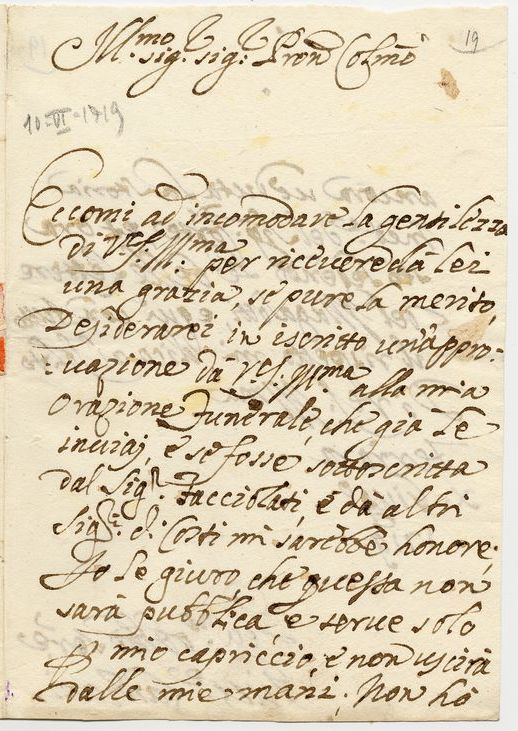 19
Ill.mo sig. sig. Pron Colmo
10-VI-1719
Eccomi ad incomodare la gentilezza
di V.S. Ill.ma per ricevere dà lei
una grazia, se pure la merito,
Desiderarei in iscritto un'appro-
vazione dà V.S. Ill.ma alla mia
Orazione Funerale, che già Le
inviai, e se fosse sottoscritta
dal Sig.r Facciolati, e dà altri
Sig.ri di Costì mi sarebbe honore;
Io Le giuro, che questa non
sarà pubblica e serve solo
P mio capriccio, e non uscirà
dalle mie mani. Non hò